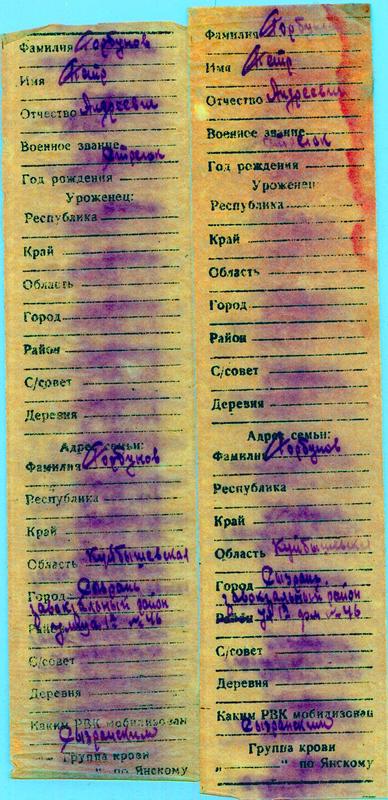 Фамилия Горбунов
Имя Петр
Отчество Андреевич
Военное звание стрелок
Год рождения
Уроженец:
Республика
Край
Область
Город
Район
С/совет
Деревня
Адрес семьи:
Фамилия Горбунов
Республика
Край
Область Куйбышевская
Город Сызрань
завокзальный район
Район улица 12 № 46
С/совет
Деревня
Каким РВК мобилизован
Сызранским
Группа крови
" по Янскому
Фамилия Горбунов
Имя Петр
Отчество Андреевич
Военное звание стрелок
Год рождения
Уроженец:
Республика
Край
Область
Город
Район
С/совет
Деревня
Адрес семьи:
Фамилия Горбунов
Республика
Край
Область Куйбышевская
Город Сызрань
завокзальный район
Район ул 12 № 46
С/совет
Деревня
Каким РВК мобилизован
Сызранским
Группа крови
" " по Янскому